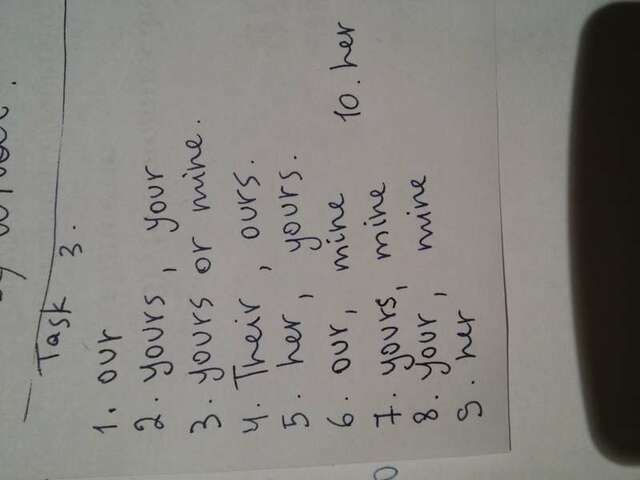 Task 3.
1. our
2. yours, your
3. yours or mine.
4. Their, ours.
5. her, yours.
6. our, mine
10. her
7. yours, mine
8. your, mine
9. her